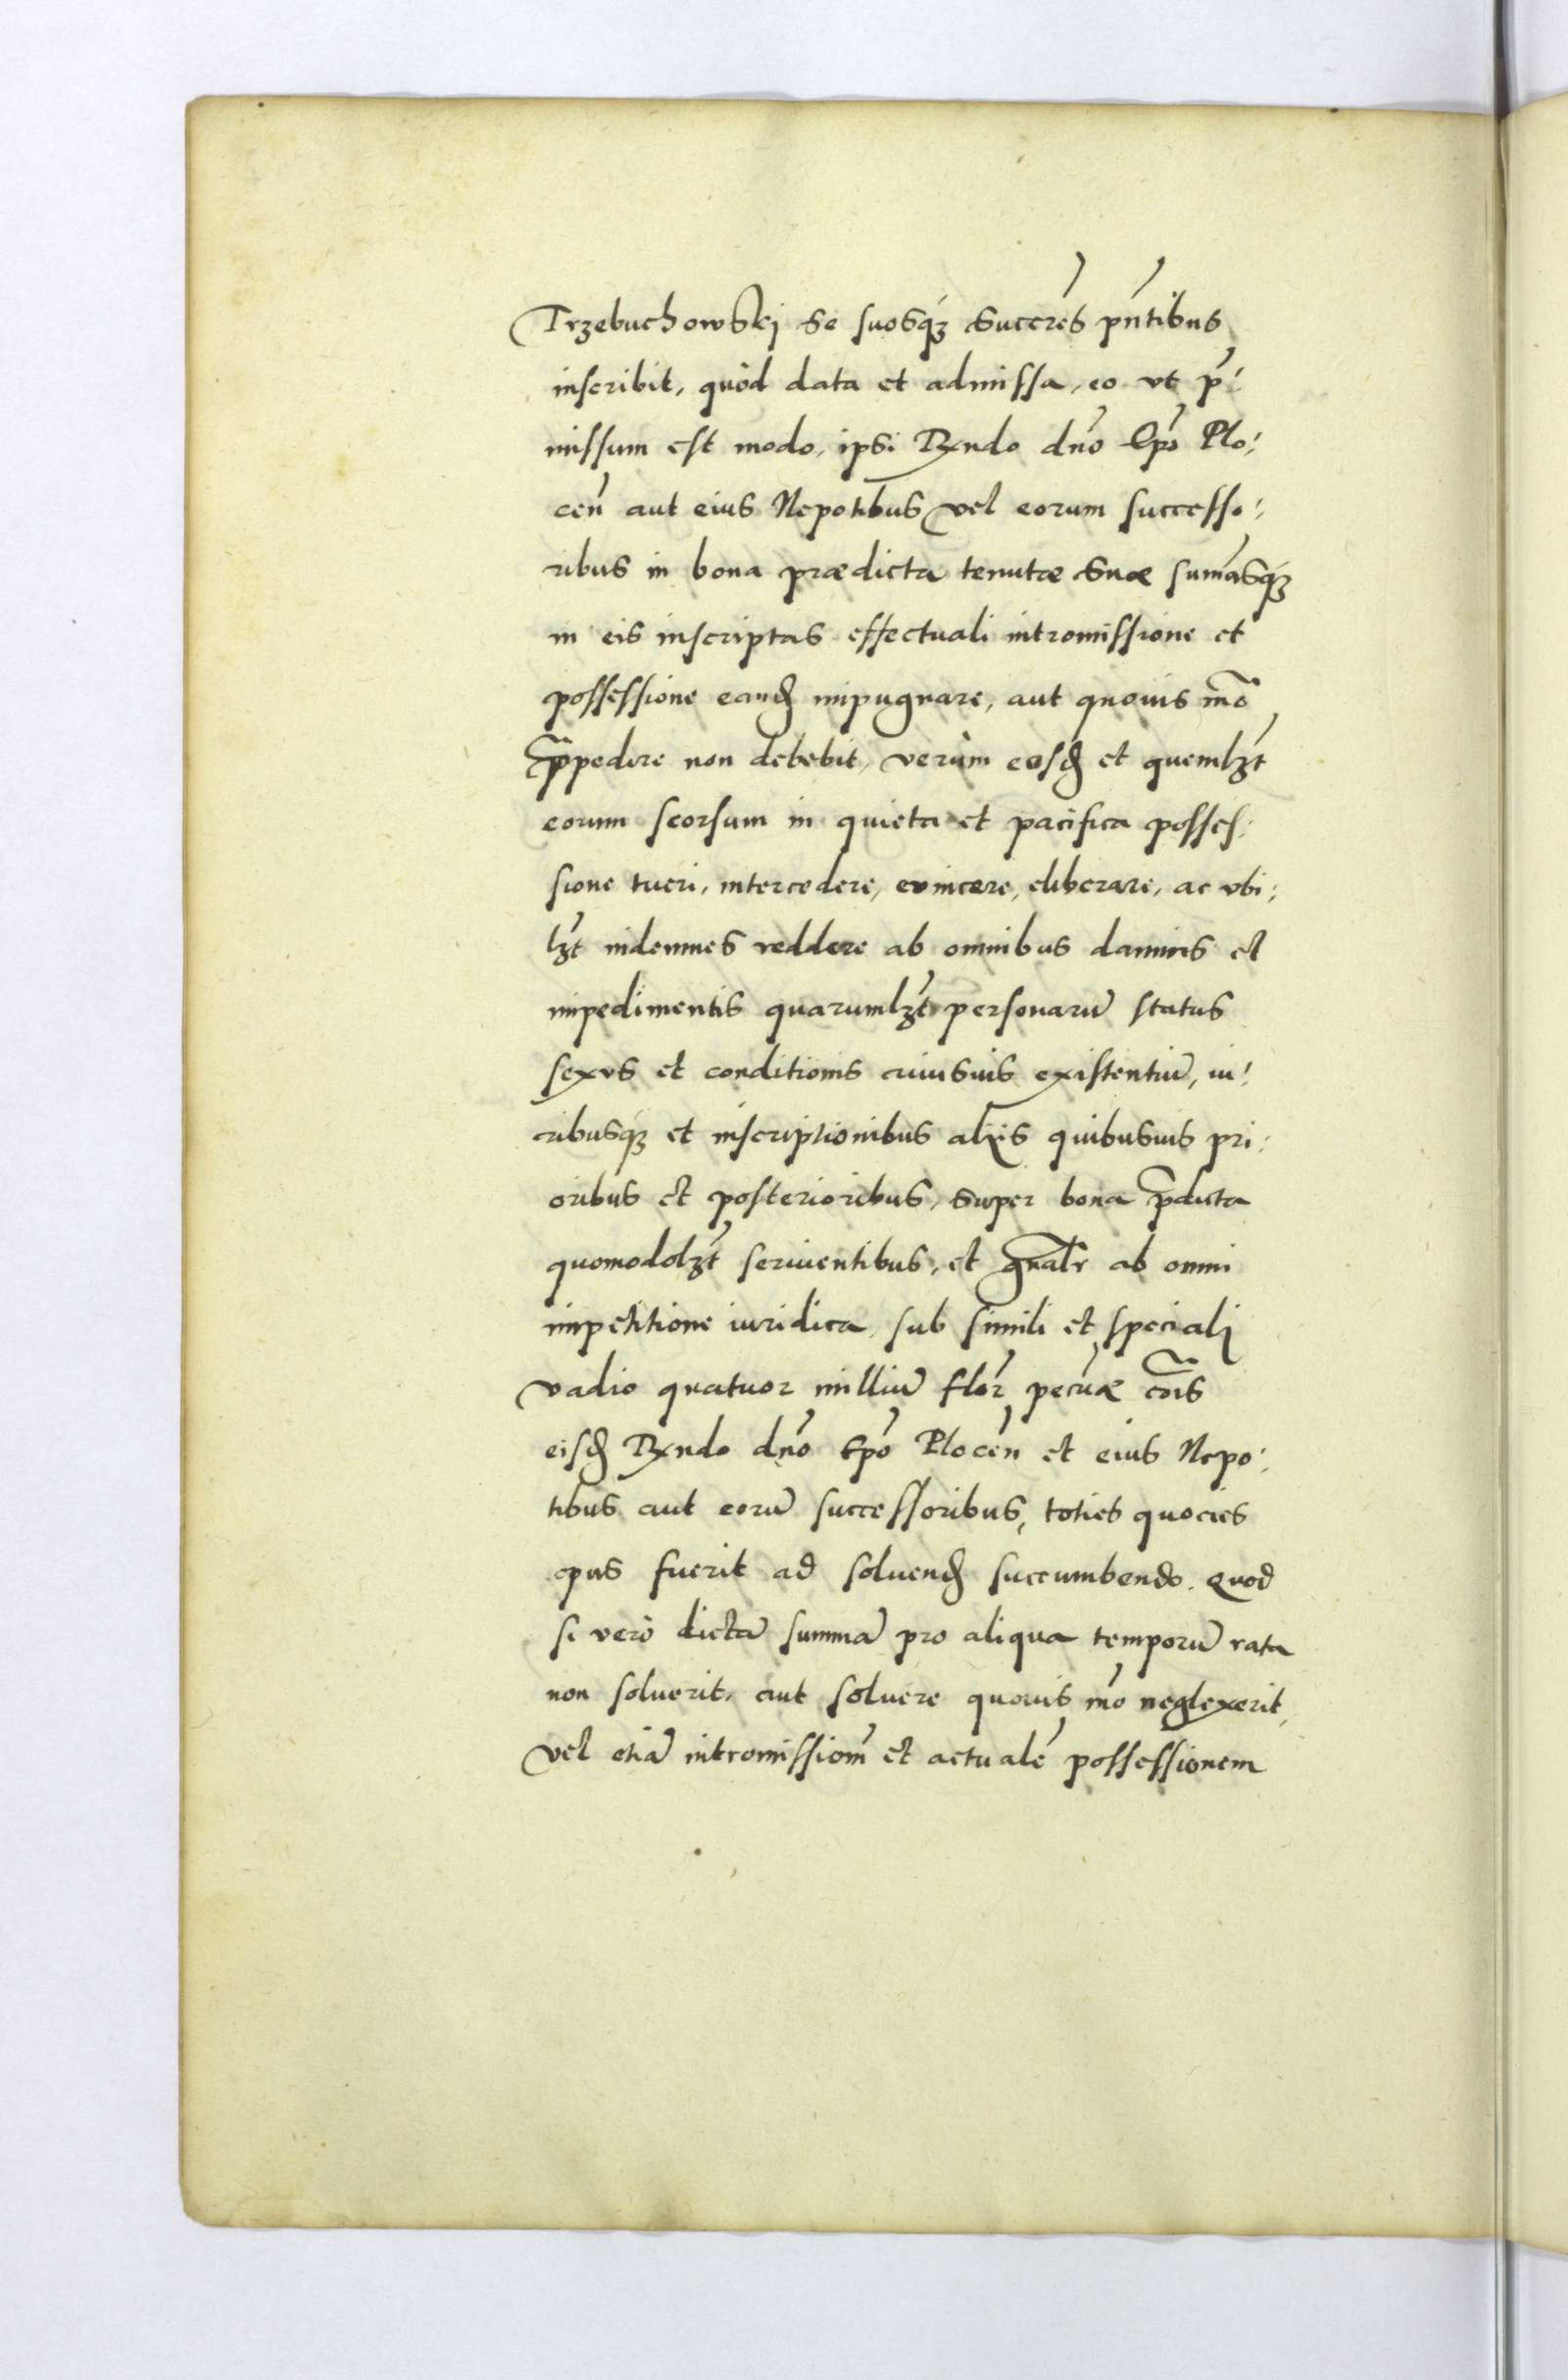 Trzebuchowskj se suosq́ꝫ succr̃es pñtibus
inscribit, quòd data et admissa, eo vt p̃:
missum est modo, ipsi Rx̃ndo dño Ep̃o Plo:
ceñ aut eius Nepotibus vel eorum successo:
ribus in bona prædicta tenutæ suæ sum̃asq́ꝫ
in eis inscriptas effectuali intromissione et
possessione eand̃ impugnare, aut quouis m̃o
p̃pedire non debebit, verùm eosd̃ et quemlꝫt
eorum seorsum in quieta et pacifica posses:
sione tueri, intercedere, euincere, eliberare, ac vbi:
lꝫt indemnes reddere ab omnibus damnis et
impedimentis quarumlꝫt personarũ status
sexus et conditionis cuiusuis existentiũ, iu:
ribusq́ꝫ et inscriptionibus alijs quibusuis pri:
oribus et posterioribus, super bona p̃dicta
quomodolꝫt seruientibus, et gñalr ab omni
impetitione iuridica, sub simili et specialj
vadio quatuor milliũ flor̃ pecũæ c̃ois
eisd̃ Rx̃ndo dño Ep̃o Ploceñ et eius Nepo:
tibus aut eorũ successoribus, toties quocies
opus fuerit ad soluend̃ succumbendo. Quod
si verò dictã summã pro aliqua temporũ rata
non soluerit, aut soluere quouis m̃o neglexerit,
vel etiã intromissiom̃ et actualẽ possessionem